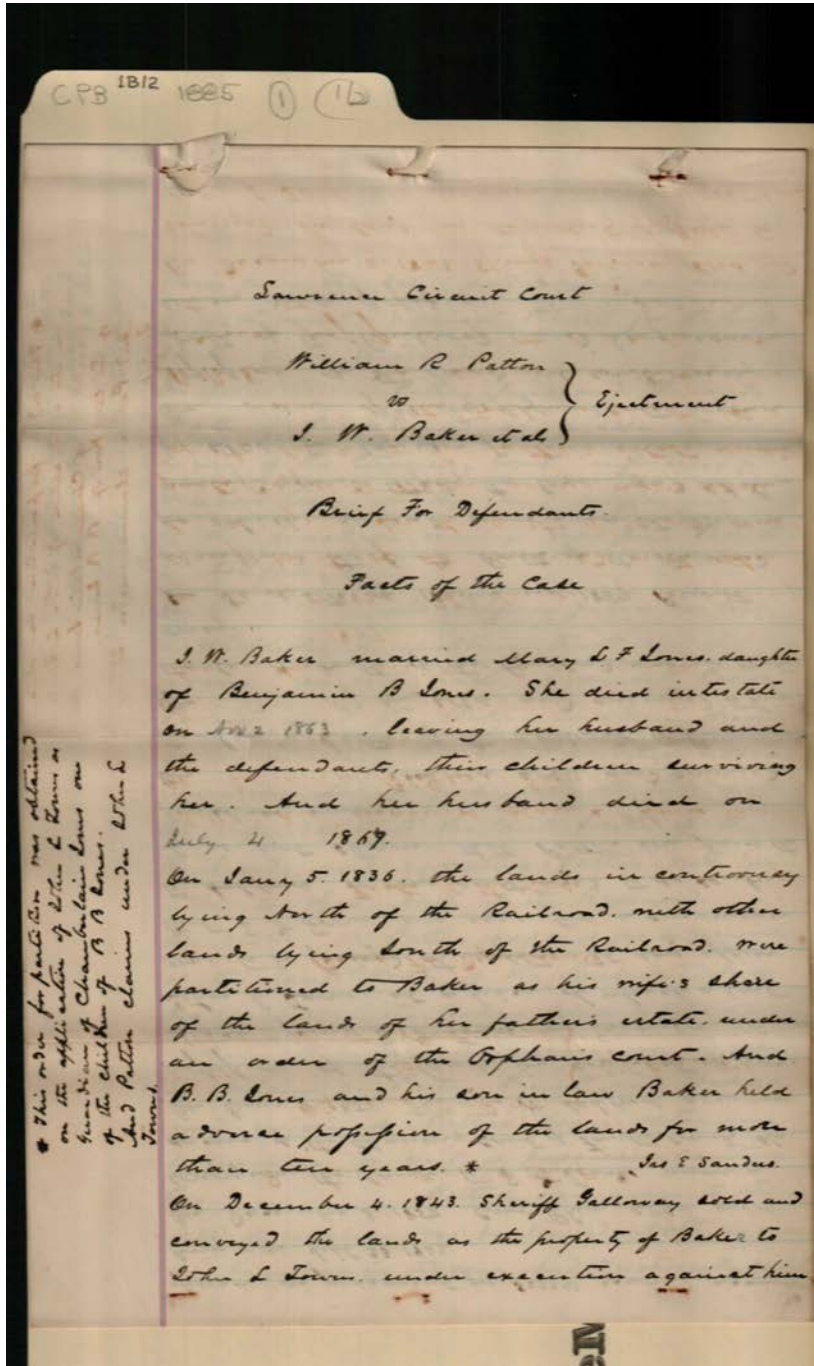 CPB 1B12 1885 ① (1/2)
Lawrence Circuit Court
William R Patton
vs
J. W. Baker et als
} Ejectment
Brief For Defendants.
Facts of the Case
J. W. Baker married Mary L F Jones. daughter
of Benjamin B Jones. She died intestate
on Nov 2 1863, leaving her husband and
the defendants, their children surviving
her. And her husband died on
July 4 1869.
On Jany 5. 1836. the lands in controversy
lying North of the Railroad. with other
lands lying South of the Railroad. were
partitioned to Baker as his wife's share
of the lands of her fathers estate. under
an order of the Orphans court. And
B. B. Jones and his son in law Baker held
adverse possession of the lands for more
than ten years. *
Jas E Sanders.
On December 4. 1843. Sheriff Galloway sold and
conveyed the lands as the property of Baker to
John L Towns. under execution against him
* This order for partition was obtained
on the application of John L Towns as
Guardian of Chamberlain Jones one
of the children of B B Jones.
And Patton claims under John L
Towns.